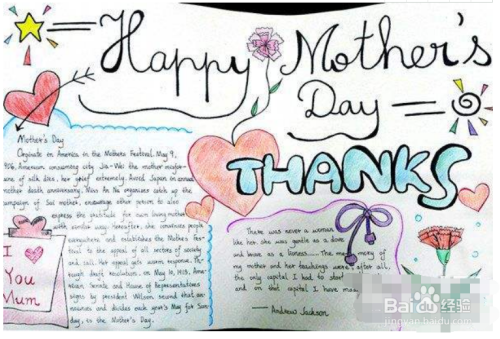 Happy Mother's
Day
THANKS
Mother's Day
Originate on America in the Mothers Festival. May 9,
906, American consumer city
of silk dies, her grief extremely.
mother death anniversary, Miss An Na organizes catch up the
campaign of Sui mother, encourage other person to also
express the gratitude for own loving mother
with similar ways. Hereafter, she convinces people
everywhere and establishes the Mothers Fes-
tival to the appeal of all sectors of society
and call. Her appeal gets warm response. Th-
rough draft resolution on May 10, 1913, Ame-
rican Senate and House of Representatives
signs by president Wilson second that an-
nounces and decides each year's May for Sun-
day, is the Mother's Day.
I
You
Mum
There was never a woman
like her. she was gentle as a dove
and brave as a lioness.... The memory of
my mother and her teachings were, after all,
the only capital I had to start
and on that capital I have made
— Andrew Jackson
Baidu 经验
jingyan.baidu.com